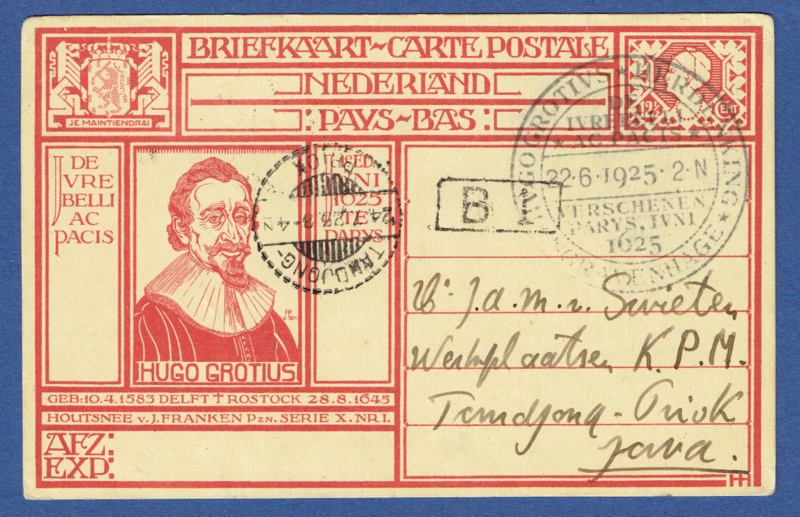 BRIEFKAART~CARTE POSTALE
NEDERLAND
PAYS~BAS
JE MAINTIENDRAI
12½ CENT
DE
JVRE
BELLI
AC
PACIS
JNI
1625
PARYS
HUGO GROTIUS
GEB: 10.4.1583 DELFT † ROSTOCK 28.8.1645
HOUTSNEE v. J. FRANKEN PZN. SERIE X. NR I.
AFZ:
EXP:
TANDJONG-
PRIOK
B
HUGO GROTIVS ★ HERDENKING ★ 'S GRAVENHAGE ★
DE
IVRE BELLI
★ AC PACIS ★
22·6·1925·2·N
VERSCHENEN
PARYS, IVNI
1625
J. d. M. v. Swieten
Werkplaatsen K.P.M.
Tandjong-Priok
Java.